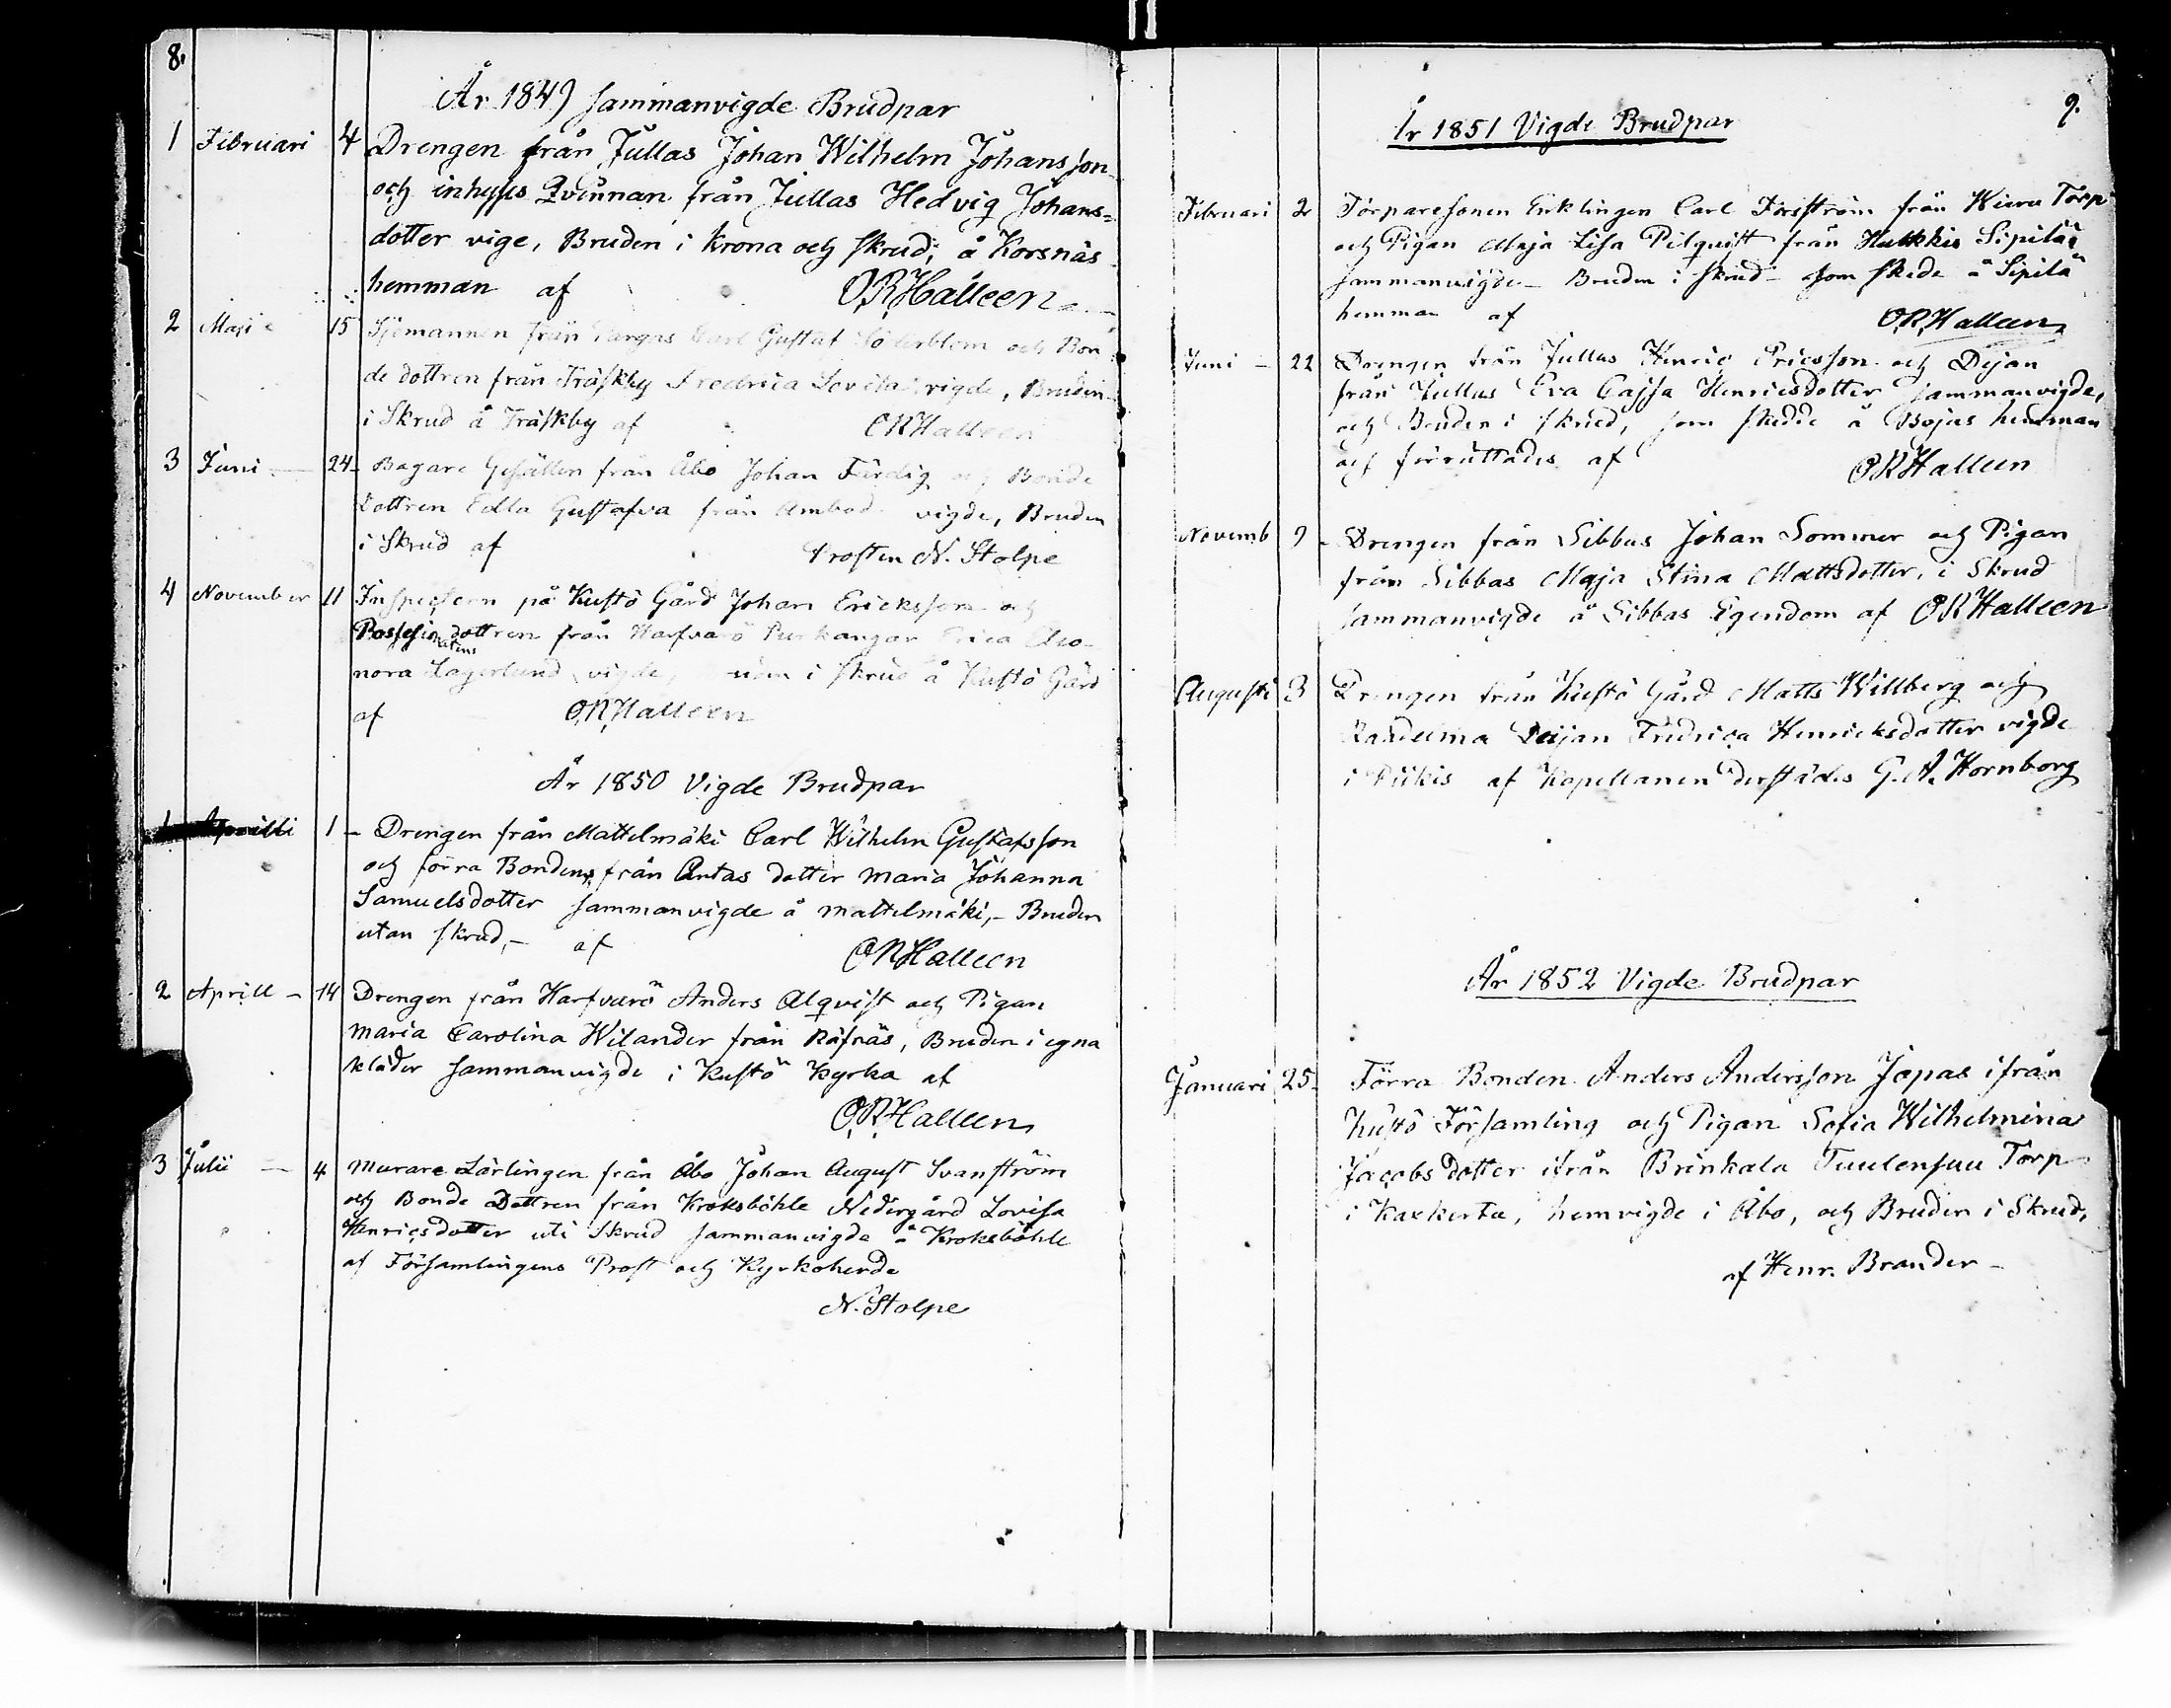 8.
År 1849 sammanvigde Brudpar
1 Februari 4 Drengen från Jullas Johan Wilhelm Johansson
och inhyses Qvinnan från Jullas Hedvig Johans=
dotter vige, Bruden i Krona och skrud, å Korsnäs
hemman af ORHalleen
2 Maji 15 Sjömannen från Pargas Carl Gustaf Söderblom och Bon
de dottren från Träskby Fredrica Lovisa vigde, Bruden
i Skrud å Träskby af ORHalleen
3 Juni 24 Bagare Gesällen från Åbo Johan Färdig och Bonde
Dottren Edla Gustafva från vigde, Bruden
i Skrud af Prosten N. Stolpe
4 November 11 Inspectorn på Kustö Gård Johan Ericksson och
Possesionatens dottren från Harfvarö Erica Eleo-
nora Lagerlund vigde, i skrud å Kustö Gård
af ORHalleen
År 1850 Vigde Brudpar
1 Aprilli 1 - Drengen från Mattelmäki Carl Wilhelm Gustafsson
och förra Bondens från Antas dotter Maria Johanna
Samuelsdotter sammanvigde å Mattelmäki,- Bruden
utan skrud,- af ORHalleen
2 Aprill - 14 Drengen från Harfvarö Anders Alqvist och Pigan
Maria Carolina Wilander från Räfnäs, Bruden i egna
kläder sammanvigde i Kustö Kyrka af
ORHalleen
3 Julii - 4 Murare Lärlingen från Åbo Johan August Svanström
och Bonde Dottren från Kroksböhle Nedergård Lovisa
Henricsdotter uti Skrud sammanvigde å Kroksböhle
af Församlingens Prost och Kyrkoherde
N. Stolpe
9.
År 1851 Vigde Brudpar
Februari 2 Torparesonen Enklingen Carl Forsström från Torp
och Pigan Maja Lisa Pilquist från Sipilä
sammanvigde - Bruden i skrud - som skede å Sipilä
hemman af ORHalleen
Juni - 22 Drengen från Jullas Henric Ericsson och Dejan
från Jullas Eva Cajsa Henricsdotter sammanvigde,
och Bruden i skrud, som skedde å Bojas hemman
och förrättades af ORHalleen
Novemb 9 - Drengen från Sibbas Johan Sommer och Pigan
från Sibbas Maja Stina Mattsdotter, i Skrud
sammanvigde å Sibbas Egendom af ORHalleen
Augusti 3 Drengen från Kustö Gård Matts Willberg och
Dejan Fredrica Henricksdotter vigde
i Piikis af Kapellanen derstädes G. A. Hornborg
År 1852 Vigde Brudpar
Januari 25 Förra Bonden Anders Andersson Jopas ifrån
Kustö Församling och Pigan Sofia Wilhelmina
Jacobsdotter ifrån Brinkala Tuulensuu Torp
i Kaxkerta, hemvigde i Åbo, och Bruden i Skrud,
af Henr. Brander -